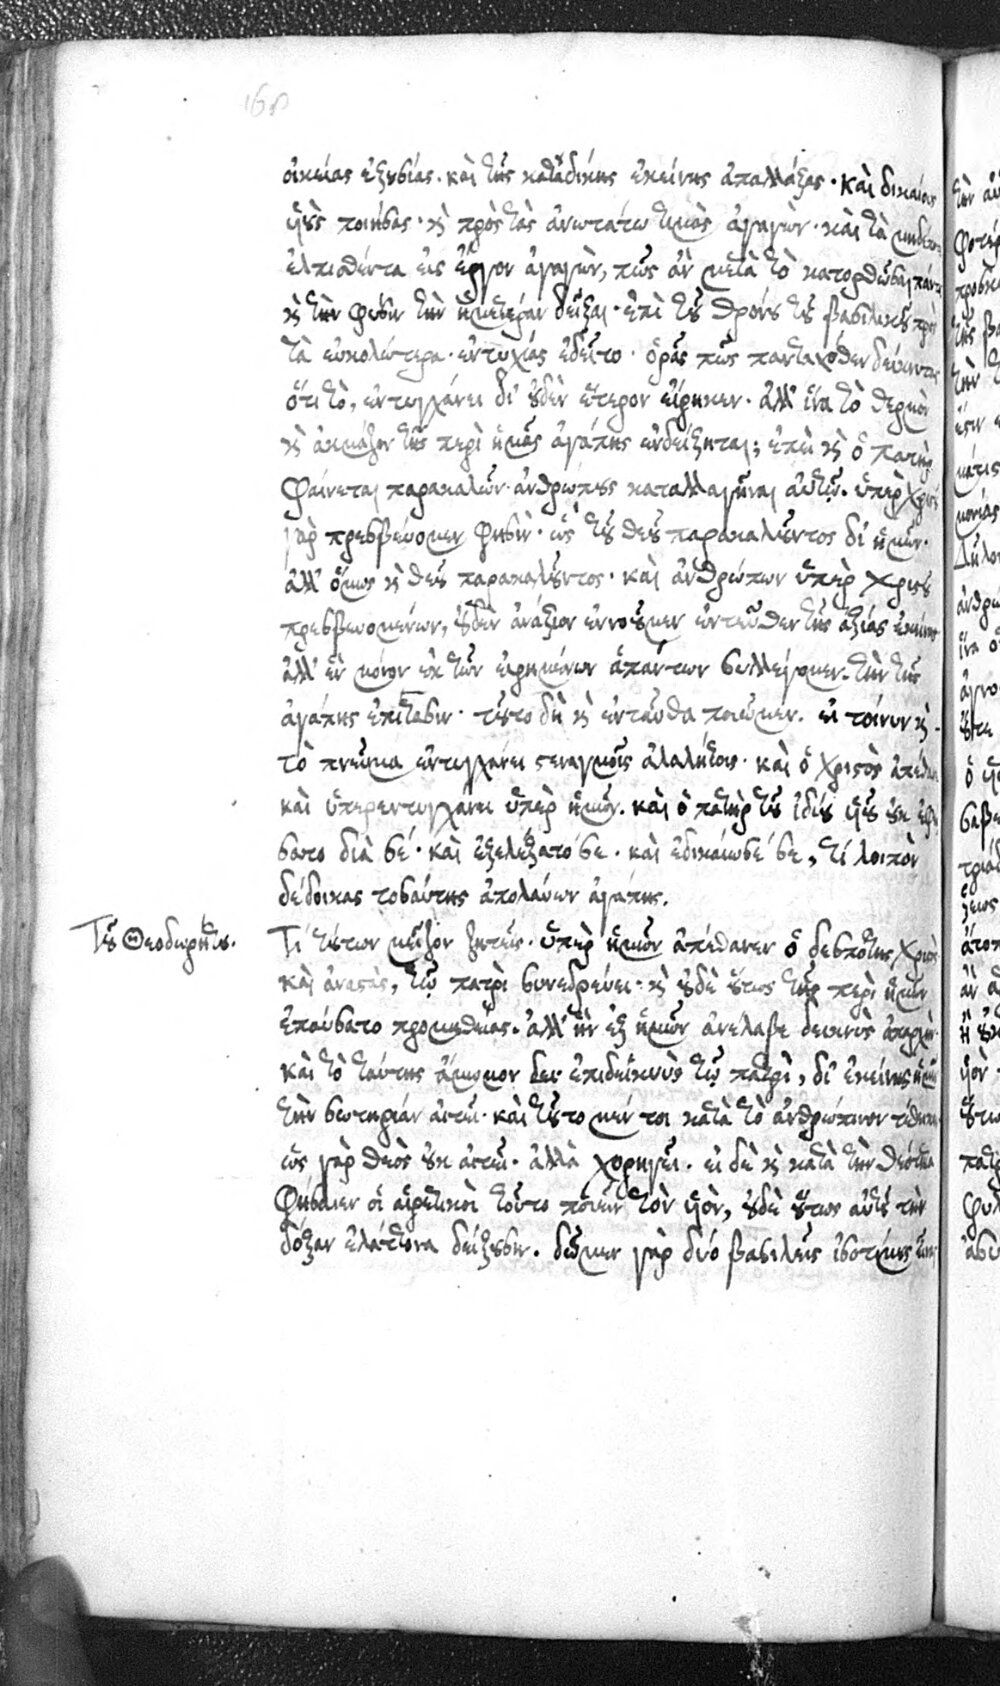 168
οἰκείας ἐξουσίας. καὶ τῆς καταδίκης ἐκείνης ἀπαλλάξας. καὶ δικαίους
υἱοὺς ποιήσας. καὶ πρὸς τὰς ἀνωτάτω τιμὰς ἀγαγὼν. καὶ τὰ μηδέποτε
ἐλπισθέντα εἰς ἔργον ἀγαγὼν, πῶς ἂν μετὰ τὸ κατορθῶσαι πάντα
καὶ τὴν φύσιν τὴν ἡμετέραν δεῖξαι. ἐπὶ τοῦ θρόνου τοῦ βασιλικοῦ πρὸς
τὰ εὐκολώτερα. ἐντυχίας ἐδεῖτο. ὁρᾷς πῶς πανταχόθεν δείκνυται
ὅτι τὸ, ἐντυγχάνει δι' οὐδὲν ἕτερον εἴρηκεν. ἀλλ' ἵνα τὸ θερμὸν
καὶ ἀκμάζον τῆς περὶ ἡμᾶς ἀγάπης ἐνδείξηται; ἐπεὶ καὶ ὁ πατὴρ
φαίνεται παρακαλῶν. ἀνθρώπους καταλλαγῆναι αὐτῷ. ὑπὲρ χριστοῦ
γὰρ πρεσβεύομεν φησὶν. ὡς τοῦ θεοῦ παρακαλοῦντος δι' ἡμῶν.
ἀλλ' ὅμως καὶ θεοῦ παρακαλοῦντος. καὶ ἀνθρώπων ὑπὲρ χριστοῦ
πρεσβευομένων, οὐδὲν ἀνάξιον ἐννοοῦμεν ἐντεῦθεν τῆς ἀξίας ἐκείνης
ἀλλ' ἓν μόνον ἐκ τῶν εἰρημένων ἁπάντων συλλέγομεν. τὴν τῆς
ἀγάπης ἐπίτασιν. τοῦτο δὴ καὶ ἐνταῦθα ποιῶμεν. εἰ τοίνυν καὶ
τὸ πνεῦμα ἐντυγχάνει στεναγμοῖς ἀλαλήτοις. καὶ ὁ χριστὸς ἀπέθανε
καὶ ὑπερεντυγχάνει ὑπὲρ ἡμῶν. καὶ ὁ πατὴρ τοῦ ἰδίου υἱοῦ οὐκ ἐφεί
σατο διὰ σέ. καὶ ἐξελέξατό σε. καὶ ἐδικαίωσέ σε, τί λοιπὸν
δέδοικας τοσαύτης ἀπολαύων ἀγάπης.
Τοῦ Θεοδωρήτου.
Τί τούτων μεῖζον ζητεῖς. ὑπὲρ ἡμῶν ἀπέθανεν ὁ δεσπότης χριστὸς
καὶ ἀναστὰς, τῷ πατρὶ συνεδρεύει. καὶ οὐδὲ οὕτως τῆς περὶ ἡμῶν
ἐπαύσατο προμηθείας. ἀλλ' ἣν ἐξ ἡμῶν ἀνέλαβε δεικνὺς ἀπαρχὴν.
καὶ τὸ ταύτης ἄμωμον ἐπιδεικνὺς τῷ πατρὶ, δι' ἐκείνης ἡμῖν
τὴν σωτηρίαν αἰτεῖ. καὶ τοῦτο μέν τοι κατὰ τὸ ἀνθρώπινον τέθεικεν
ὡς γὰρ θεὸς οὐκ αἰτεῖ. ἀλλὰ χορηγεῖ. εἰ δὲ καὶ κατὰ τὴν θεότητα
φήσαιεν οἱ αἱρετικοὶ τοῦτο ποιεῖν τὸν υἱὸν, οὐδὲ οὕτως αὐτοῦ τὴν
δόξαν ἐλάττονα δείξουσιν. δῶμεν γὰρ δύο βασιλεῖς ἰσοτίμους